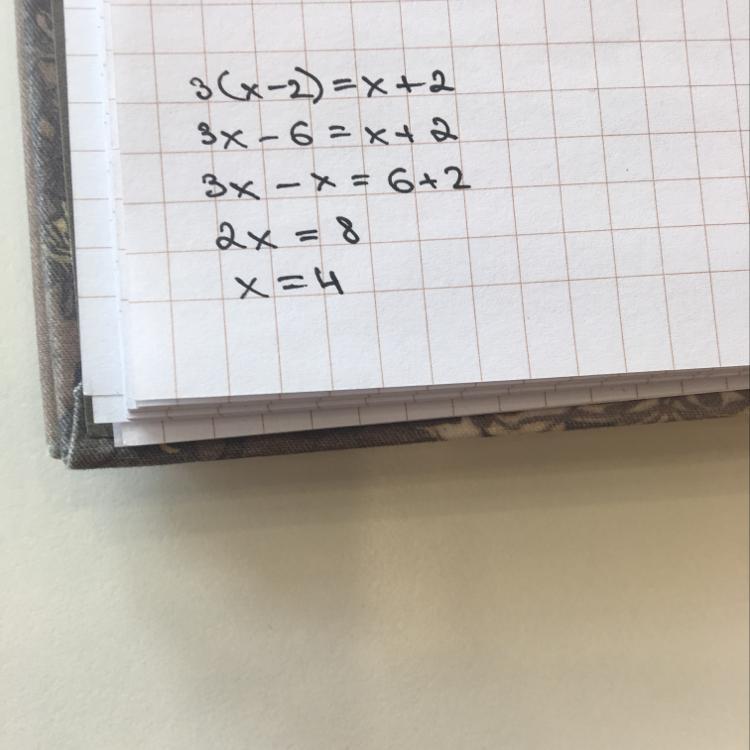 3(x-2)=x+2
3x-6=x+2
3x-x=6+2
2x=8
x=4